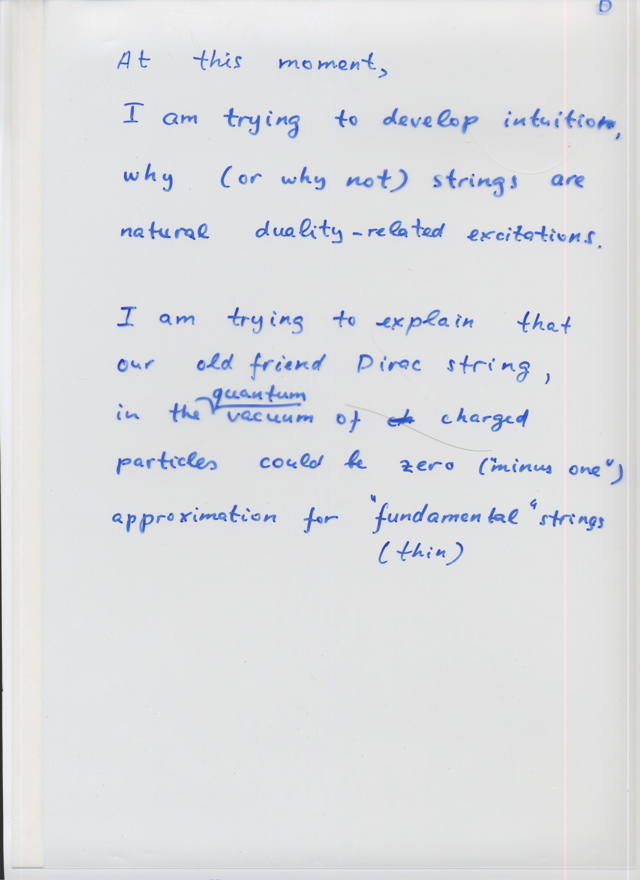 At this moment,
I am trying to develop intuition,
why (or why not) strings are
natural duality-related excitations.
I am trying to explain that
our old friend Dirac string,
quantum
in the vacuum of charged
particles could be zero ("minus one")
approximation for "fundamental" strings
(thin)